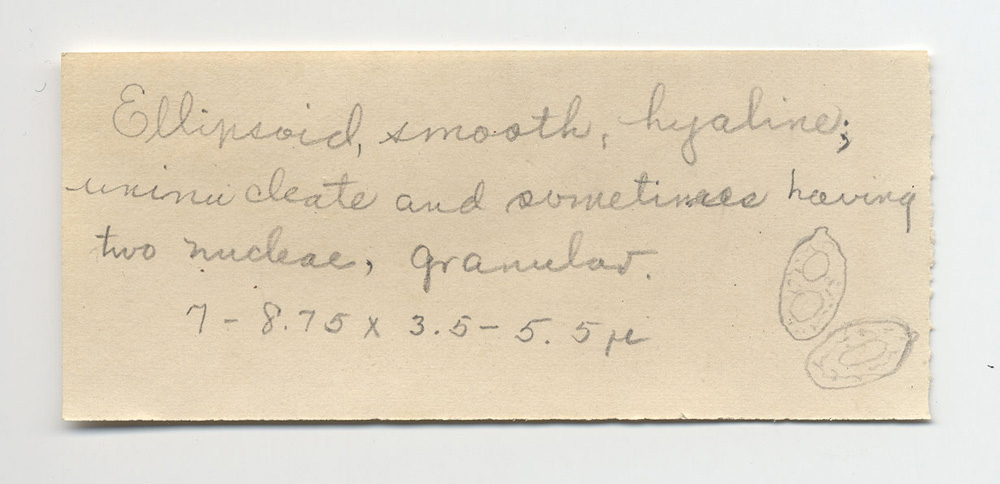 Ellipsoid, smooth, hyaline;
uninucleate and sometimes having
two nucleae, granular.
7 - 8.75 x 3.5 - 5.5 µ